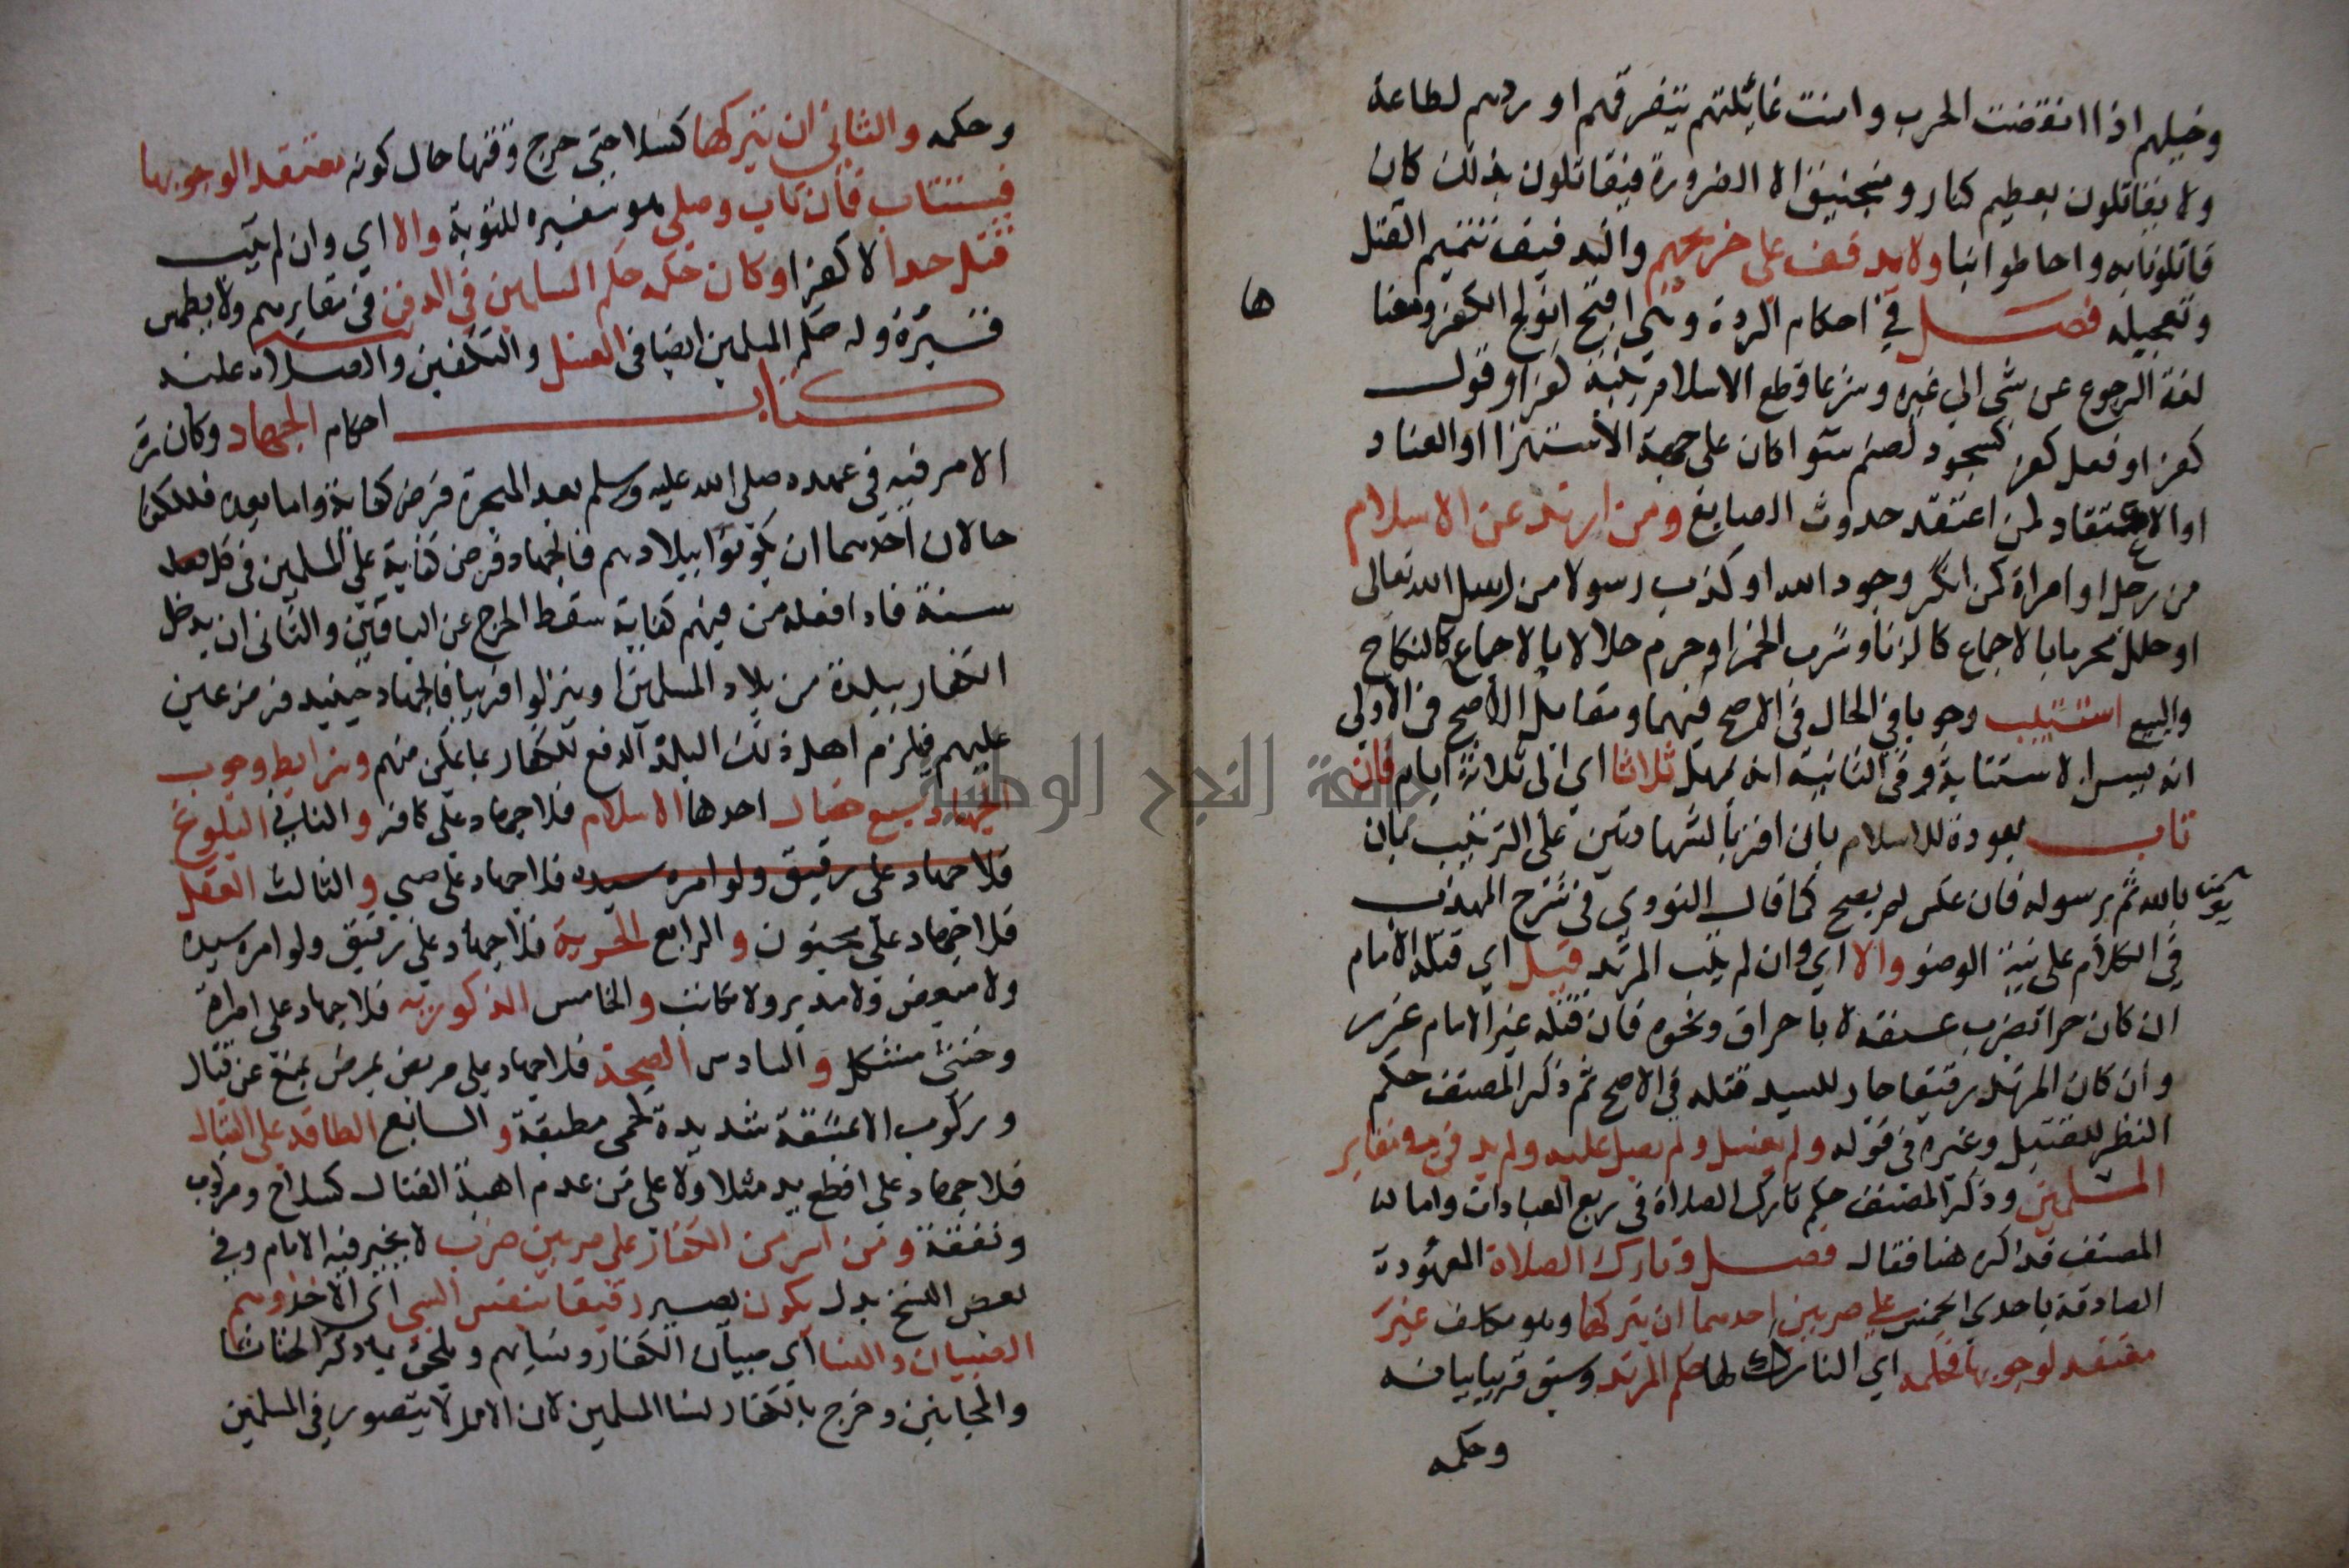 وخيلهم اذا انقضت الحرب وامنت غائلتهم بتفرقهم او ردهم لطاعة
ولا يقاتلون بعظيم كنار ومنجنيق الا لضرورة فيقاتلون بذلك كان
قاتلونا به واحاطوا بنا ولا يدفف على جريحهم والتدفيف تتميم القتل
وتعجيله فصل في احكام الردة وهي اقبح انواع الكفر ومعنا
ها
لغة الرجوع عن شي الي غيره وشرعا قطع الاسلام بنية كفر او قول
كفر او فعل كفر كسجود لصنم سوا كان على جهة الاستهزا او العناد
او الاعتقاد لمن اعتقد حدوث الصانع ومن ارتد عن الاسلام
من رجل او امراة كمن انكر وجود الله او كذب رسولا من رسل الله تعالى
او حلل محرما بالاجماع كالزنا وشرب الخمر او حرم حلالا بالاجماع كالنكاح
والبيع استتيب وجوبا في الحال في الاصح فيهما ومقابل الاصح في الاولى
انه يسن الاستتابة وفي الثانية انه يمهل ثلاثا اي الى ثلاثة ايام فان
تاب بعوده للاسلام بان اقر بالشهادتين على الترتيب بان
يؤمن بالله ثم برسوله فان عكس لم يصح كما قال النووي في شرح المهذب
في الكلام على نية الوضو والا اي وان لم يتب المرتد قتل اي قتله الامام
ان كان حرا بضرب عنقه لا باحراق ونحوه فان قتله غير الامام عزر
وان كان المرتد رقيقا جاز للسيد قتله في الاصح ثم ذكر المصنف حكم
الغسل وغيره في قوله ولم يغسل ولم يصل عليه ولم يدفن في مقابر
المسلمين وذكر المصنف حكم تارك الصلاة في ربع العبادات واما
المصنف فذاكره هنا فقال فصل وتارك الصلاة المعهودة
الصادقة باحدى الخمس على ضربين احدهما ان يتركها وهو مكلف غير
معتقد لوجوبها فحكمه اي التارك لها حكم المرتد وسبق قريبا بيانه
وحكمه
وحكمه والثاني ان يتركها كسلا حتى خرج وقتها حال كونه معتقد الوجوبها
فيستتاب فان تاب وصلي وهو تفسير للتوبة والا اي وان لم يتب
قتل حدا لا كفرا وكان حكمه حكم المسلمين في الدفن في مقابرهم ولا يطمس
قبره وله حكم المسلمين ايضا في الغسل والتكفين والصلاة عليه
كتاب احكام الجهاد وكان
الامر فيه في عهده صلى الله عليه وسلم بعد الهجرة فرض كفاية واما بعده فللكفار
حالان احدهما ان يكونوا ببلادهم فالجهاد فرض كفاية على المسلمين في كل
سنة فاذا فعله من فيهم كفاية سقط الحرج عن الباقين والثاني ان يدخل
الكفار ببلدة من بلاد المسلمين او ينزلوا قريبا فالجهاد حينيذ فرض عين
عليهم فيلزم اهل ذلك البلد الدفع للكفار بما يمكن منهم وشرايط وجوب
الجهاد سبع خصال احدها الاسلام فلا جهاد على كافر والثاني البلوغ
فلا جهاد على رقيق ولو امره سيده فلا جهاد على صبي والثالث العقل
فلا جهاد على مجنون والرابع الحرية فلا جهاد على رقيق ولو امره سيده
ولا مبعض ولا مدبر ولا مكاتب والخامس الذكورية فلا جهاد على امراة
وخنثى مشكل والسادس الصحة فلا جهاد على مريض بمرض يمنعه عن قتال
وركوب الا بمشقة شديدة كحمى مطبقة والسابع الطاقة على القتال
فلا جهاد على اقطع يد مثلا ولا على من عدم اهبة القتال كسلاح ومركوب
ونفقة ومن اسر من الكفار على ضربين ضرب لا يخير فيه الامام وفي
بعض النسخ بدل يكون يصير رقيقا بنفس السبي اي الاخذ وهم
الصبيان والنسا اي صبيان الكفار ونساؤهم ويلحق بما ذكر الخناثا
والمجانين وخرج بالكفار نسا المسلمين لان الاسر لا يتصور في المسلمين
جامعة النجاح الوطنية